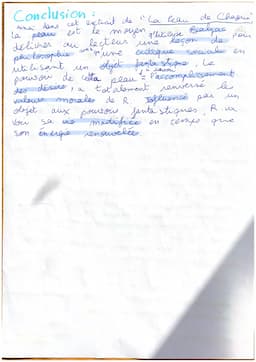 Conclusion :
dans cet extrait de "La Peau de Chagrin"
La peau est le moyen Balzac pour
délivrer au lecteur une leçon de
philosophie une critique sociale en
utilisant un objet fantastique. Le
pouvoir de cette peau l'accomplissement
des désirs, a totalement renversé les
valeurs morales de R influencé par un
objet aux pouvoirs fantastiques. R va
voir sa vie modifiée en temps que
son énergie renouvelée.